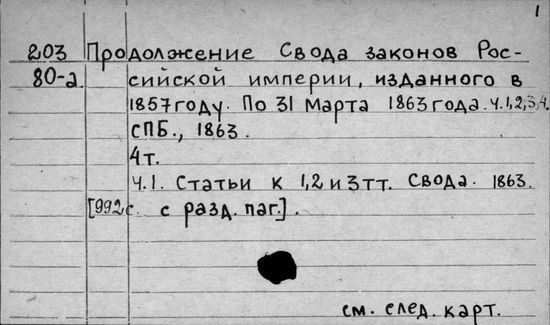 1
203 Продолжение Свода законов Рос-
80-а сийской империи, изданного в
1857 году. По 31 марта 1863 года. Ч.1,2,3,4.
СПБ., 1863.
4т.
Ч.1. Статьи к 1,2 и 3 тт. Свода. 1863.
[992с. с разд. паг.].
см. след. карт.